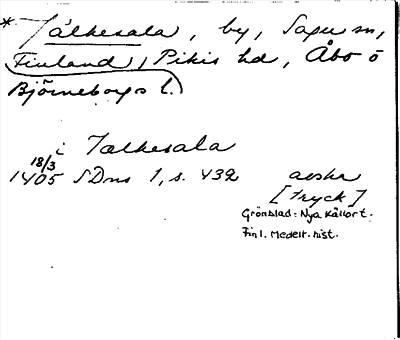 * Tälkesala, by, Sagu sn,
Finland, Pikis hd, Åbo o
Björneborgs l.
i Talkesala
18/3
1405 SDns 1, s. 432 avskr
[tryck]
Grönblad: Nya källor t.
Finl. Medelt. hist.